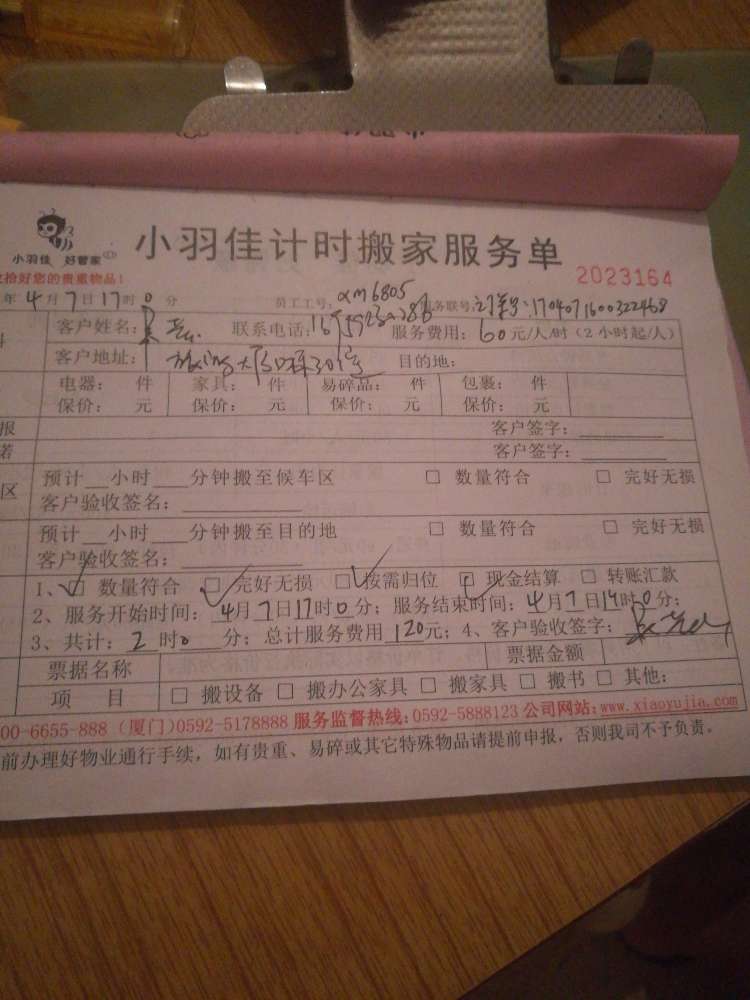 小羽佳 好管家
小羽佳计时搬家服务单
拾好您的贵重物品!
2023164
年4月7日17时0分 员工工号:xm6805 务联号: 1704071600322468
客户姓名: 联系电话: 服务费用:60元/人/时(2小时起/人)
客户地址: 目的地:
电器: 件 家具: 件 易碎品: 件 包裹: 件
保价: 元 保价: 元 保价: 元 保价: 元
报 客户签字:
诺 客户签字:
区 预计 小时 分钟搬至候车区 □ 数量符合 □ 完好无损
客户验收签名:
预计 小时 分钟搬至目的地 □ 数量符合 □ 完好无损
客户验收签名:
1、☑ 数量符合 ☑ 完好无损 ☑ 按需归位 ☑ 现金结算 □ 转账汇款
2、服务开始时间:4月7日17时0分;服务结束时间:4月7日19时0分;
3、共计:2时0分;总计服务费用120元;4、客户验收签字:
票据名称 票据金额
项 目 □ 搬设备 □ 搬办公家具 □ 搬家具 □ 搬书 □ 其他:
00-6655-888 (厦门)0592-5178888 服务监督热线:0592-5888123 公司网站:www.xiaoyujia.com
前办理好物业通行手续,如有贵重、易碎或其它特殊物品请提前申报,否则我司不予负责。